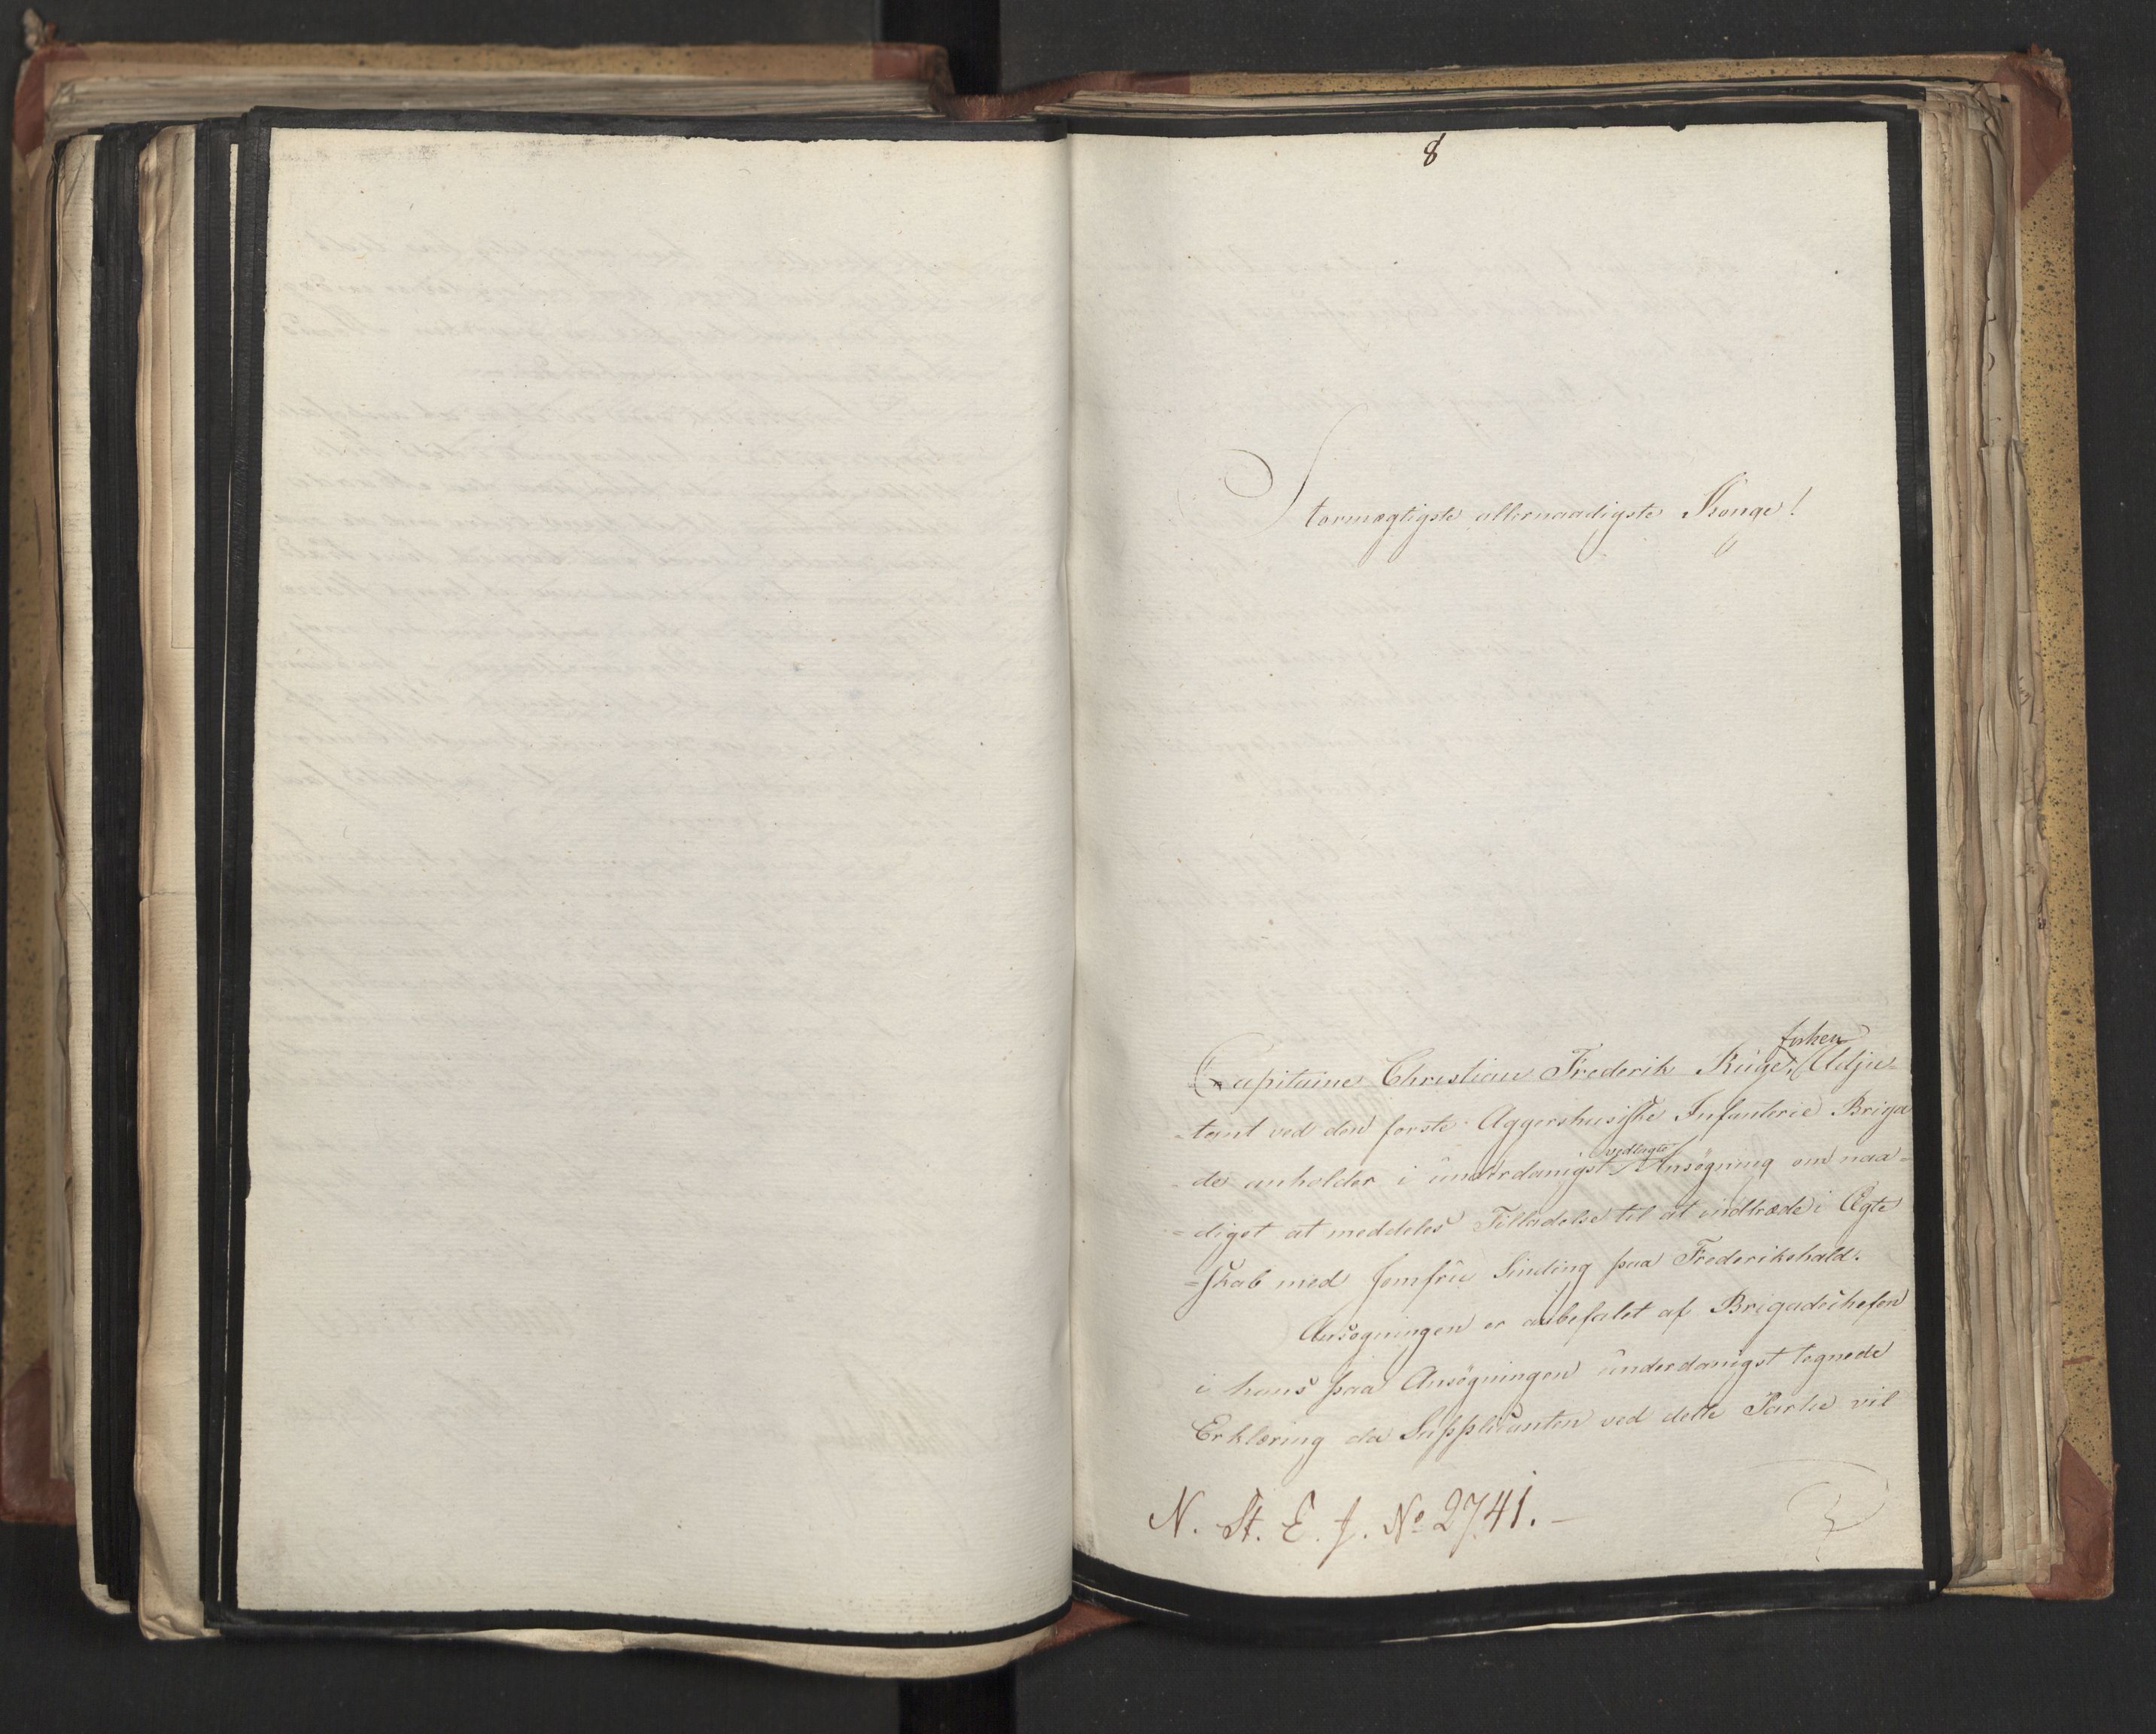 8
Stormægtigste allernaadigste Konge!
forhen
Capitaine Christian Frederik Ruge, Adju-
-tant ved den første Aggershusiske Infanterie Briga
vedlagte
-de anholder i underdanigst Ansøgning om naa-
-digst at meddeles Tilladelse til at indtræde i Ægte
-skab med Jomfru Sinding paa Frederikshald.
Ansøgningen er anbefalet af Brigadechefen
i hans paa Ansøgningen underdanigst tegnede
Erklæring da Supplicanten ved dette Partie vil
N. St. E. J. No 2741.-